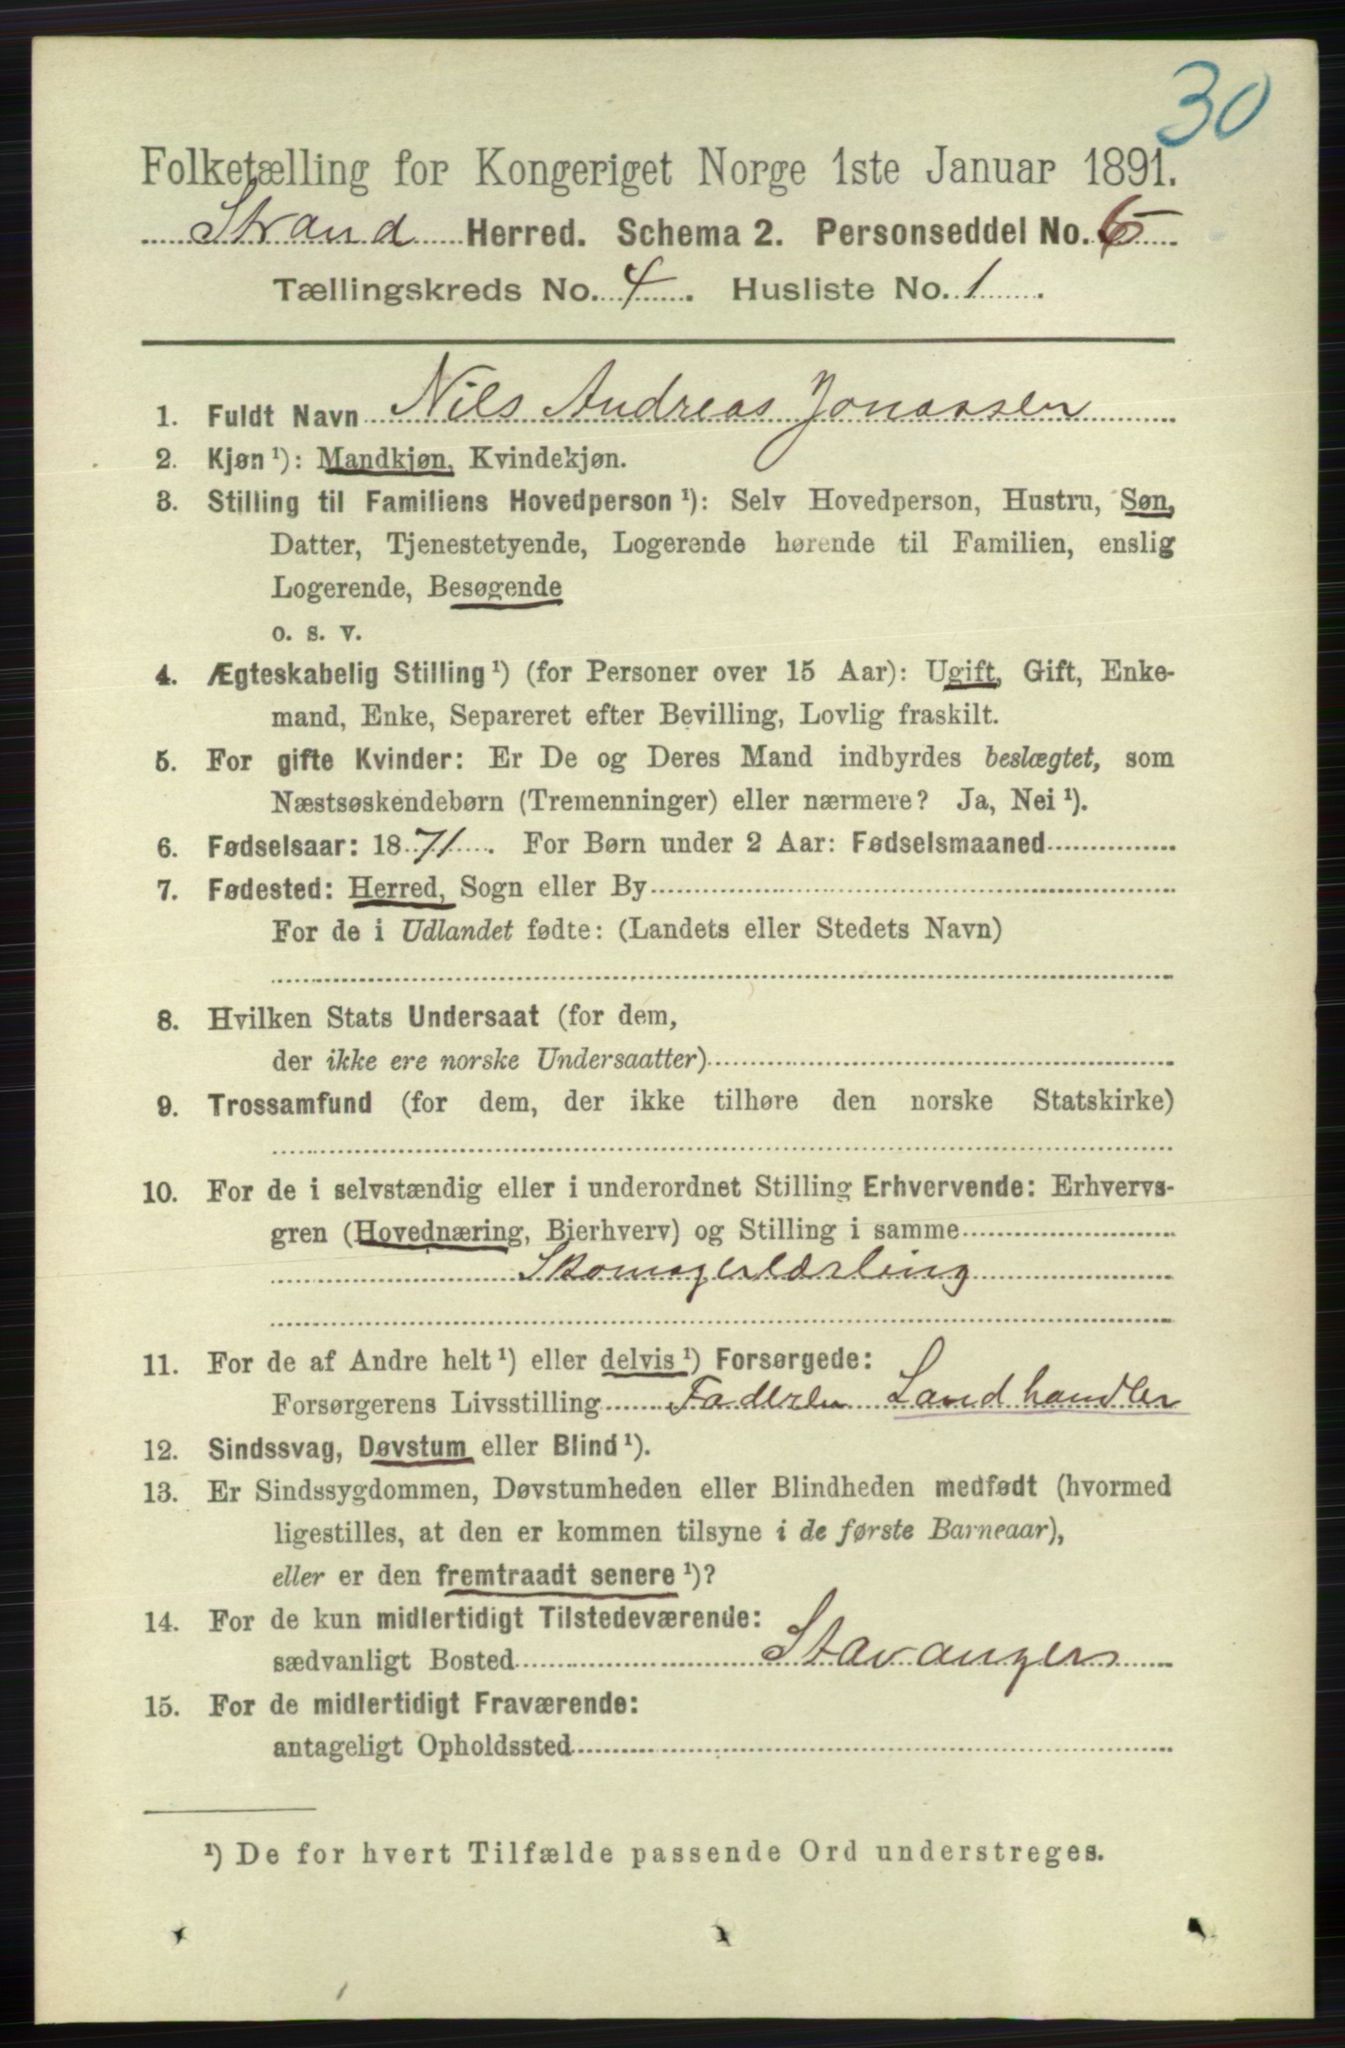 30
Folketælling for Kongeriget Norge 1ste Januar 1891.
Strand Herred. Schema 2. Personseddel No.
Tællingskreds No. 4. Husliste No. 1.
1. Fuldt Navn Nils Andreas Jonassen
2. Kjøn¹): Mandkjøn, Kvindekjøn.
3. Stilling til Familiens Hovedperson¹): Selv Hovedperson, Hustru, Søn,
Datter, Tjenestetyende, Logerende hørende til Familien, enslig
Logerende, Besøgende
o. s. v.
4. Ægteskabelig Stilling¹) (for Personer over 15 Aar): Ugift, Gift, Enke-
mand, Enke, Separeret efter Bevilling, Lovlig fraskilt.
5. For gifte Kvinder: Er De og Deres Mand indbyrdes beslægtet, som
Næstsøskendebørn (Tremenninger) eller nærmere? Ja, Nei¹).
6. Fødselsaar: 1871. For Børn under 2 Aar: Fødselsmaaned
7. Fødested: Herred, Sogn eller By
For de i Udlandet fødte: (Landets eller Stedets Navn)
8. Hvilken Stats Undersaat (for dem,
der ikke ere norske Undersaatter)
9. Trossamfund (for dem, der ikke tilhøre den norske Statskirke)
10. For de i selvstændig eller i underordnet Stilling Erhvervende: Erhvervs-
gren (Hovednæring, Bierhverv) og Stilling i samme
Skomagerlærling
11. For de af Andre helt¹) eller delvis¹) Forsørgede:
Forsørgerens Livsstilling Faderen Landhandler
12. Sindssvag, Døvstum eller Blind¹).
13. Er Sindssygdommen, Døvstumheden eller Blindheden medfødt (hvormed
ligestilles, at den er kommen tilsyne i de første Barneaar),
eller er den fremtraadt senere¹)?
14. For de kun midlertidigt Tilstedeværende:
sædvanligt Bosted Stavanger
15. For de midlertidigt Fraværende:
antageligt Opholdssted
¹) De for hvert Tilfælde passende Ord understreges.